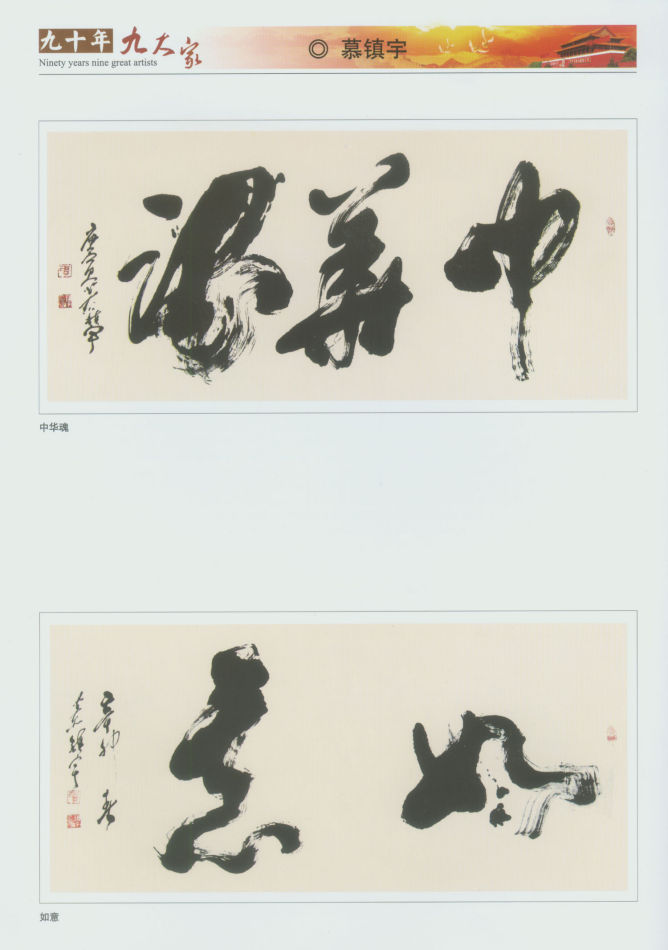 九十年 九大家
Ninety years nine great artists
◎ 慕镇宇
中華魂
中华魂
如意
辛卯春
慕镇宇
如意